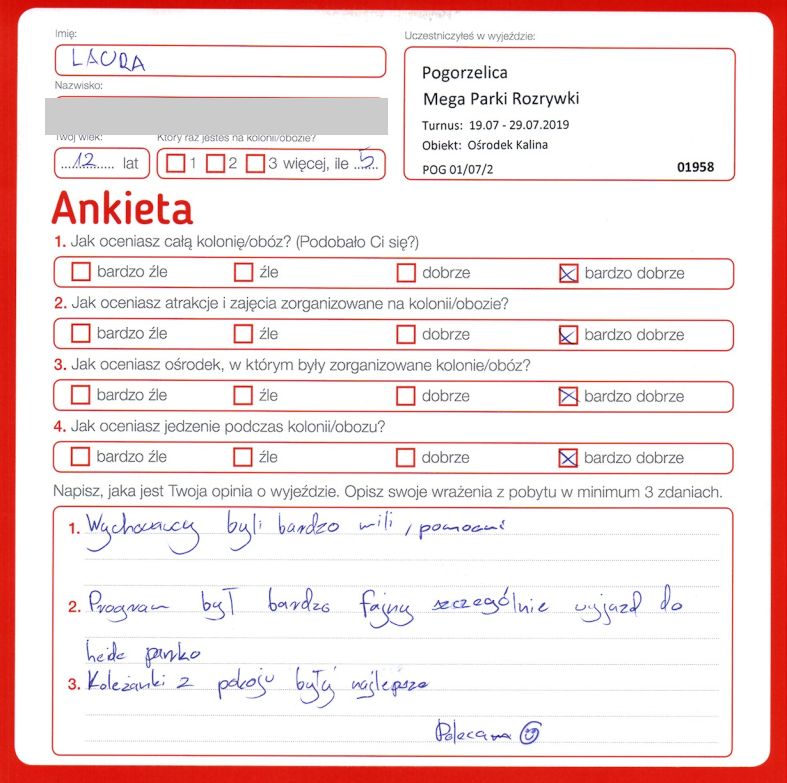 Imię:
LAURA
Nazwisko:
Twój wiek:
Który raz jesteś na kolonii/obozie?
....12.... lat
1 2 3 więcej, ile ..5..
Uczestniczyłeś w wyjeździe:
Pogorzelica
Mega Parki Rozrywki
Turnus: 19.07 - 29.07.2019
Obiekt: Ośrodek Kalina
POG 01/07/2 01958
Ankieta
1. Jak oceniasz całą kolonię/obóz? (Podobało Ci się?)
bardzo źle źle dobrze bardzo dobrze
2. Jak oceniasz atrakcje i zajęcia zorganizowane na kolonii/obozie?
bardzo źle źle dobrze bardzo dobrze
3. Jak oceniasz ośrodek, w którym były zorganizowane kolonie/obóz?
bardzo źle źle dobrze bardzo dobrze
4. Jak oceniasz jedzenie podczas kolonii/obozu?
bardzo źle źle dobrze bardzo dobrze
Napisz, jaka jest Twoja opinia o wyjeździe. Opisz swoje wrażenia z pobytu w minimum 3 zdaniach.
1. Wychowawcy byli bardzo mili, pomocni
2. Program był bardzo fajny szczególnie wyjazd do
heide parko
3. Koleżanki z pokoju były najlepsze
Polecam